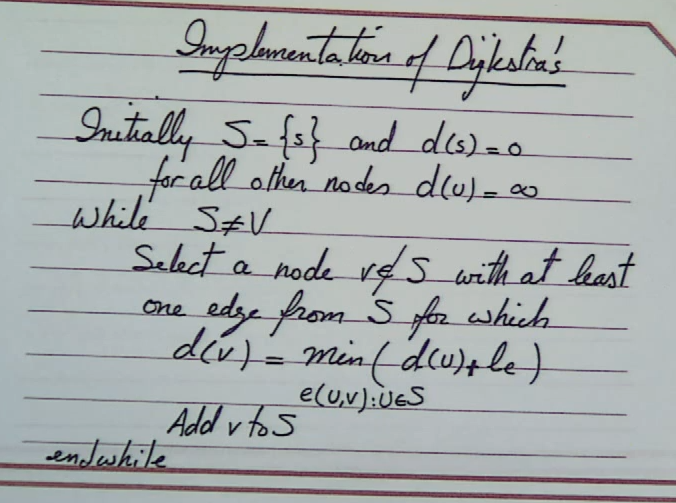 Implementation of Dijkstra's
Initially S = {s} and d(s) = 0
for all other nodes d(u) = ∞
While S ≠ V
Select a node v ∉ S with at least
one edge from S for which
d(v) = min ( d(u) + le )
e(u,v) : u ∈ S
Add v to S
endwhile